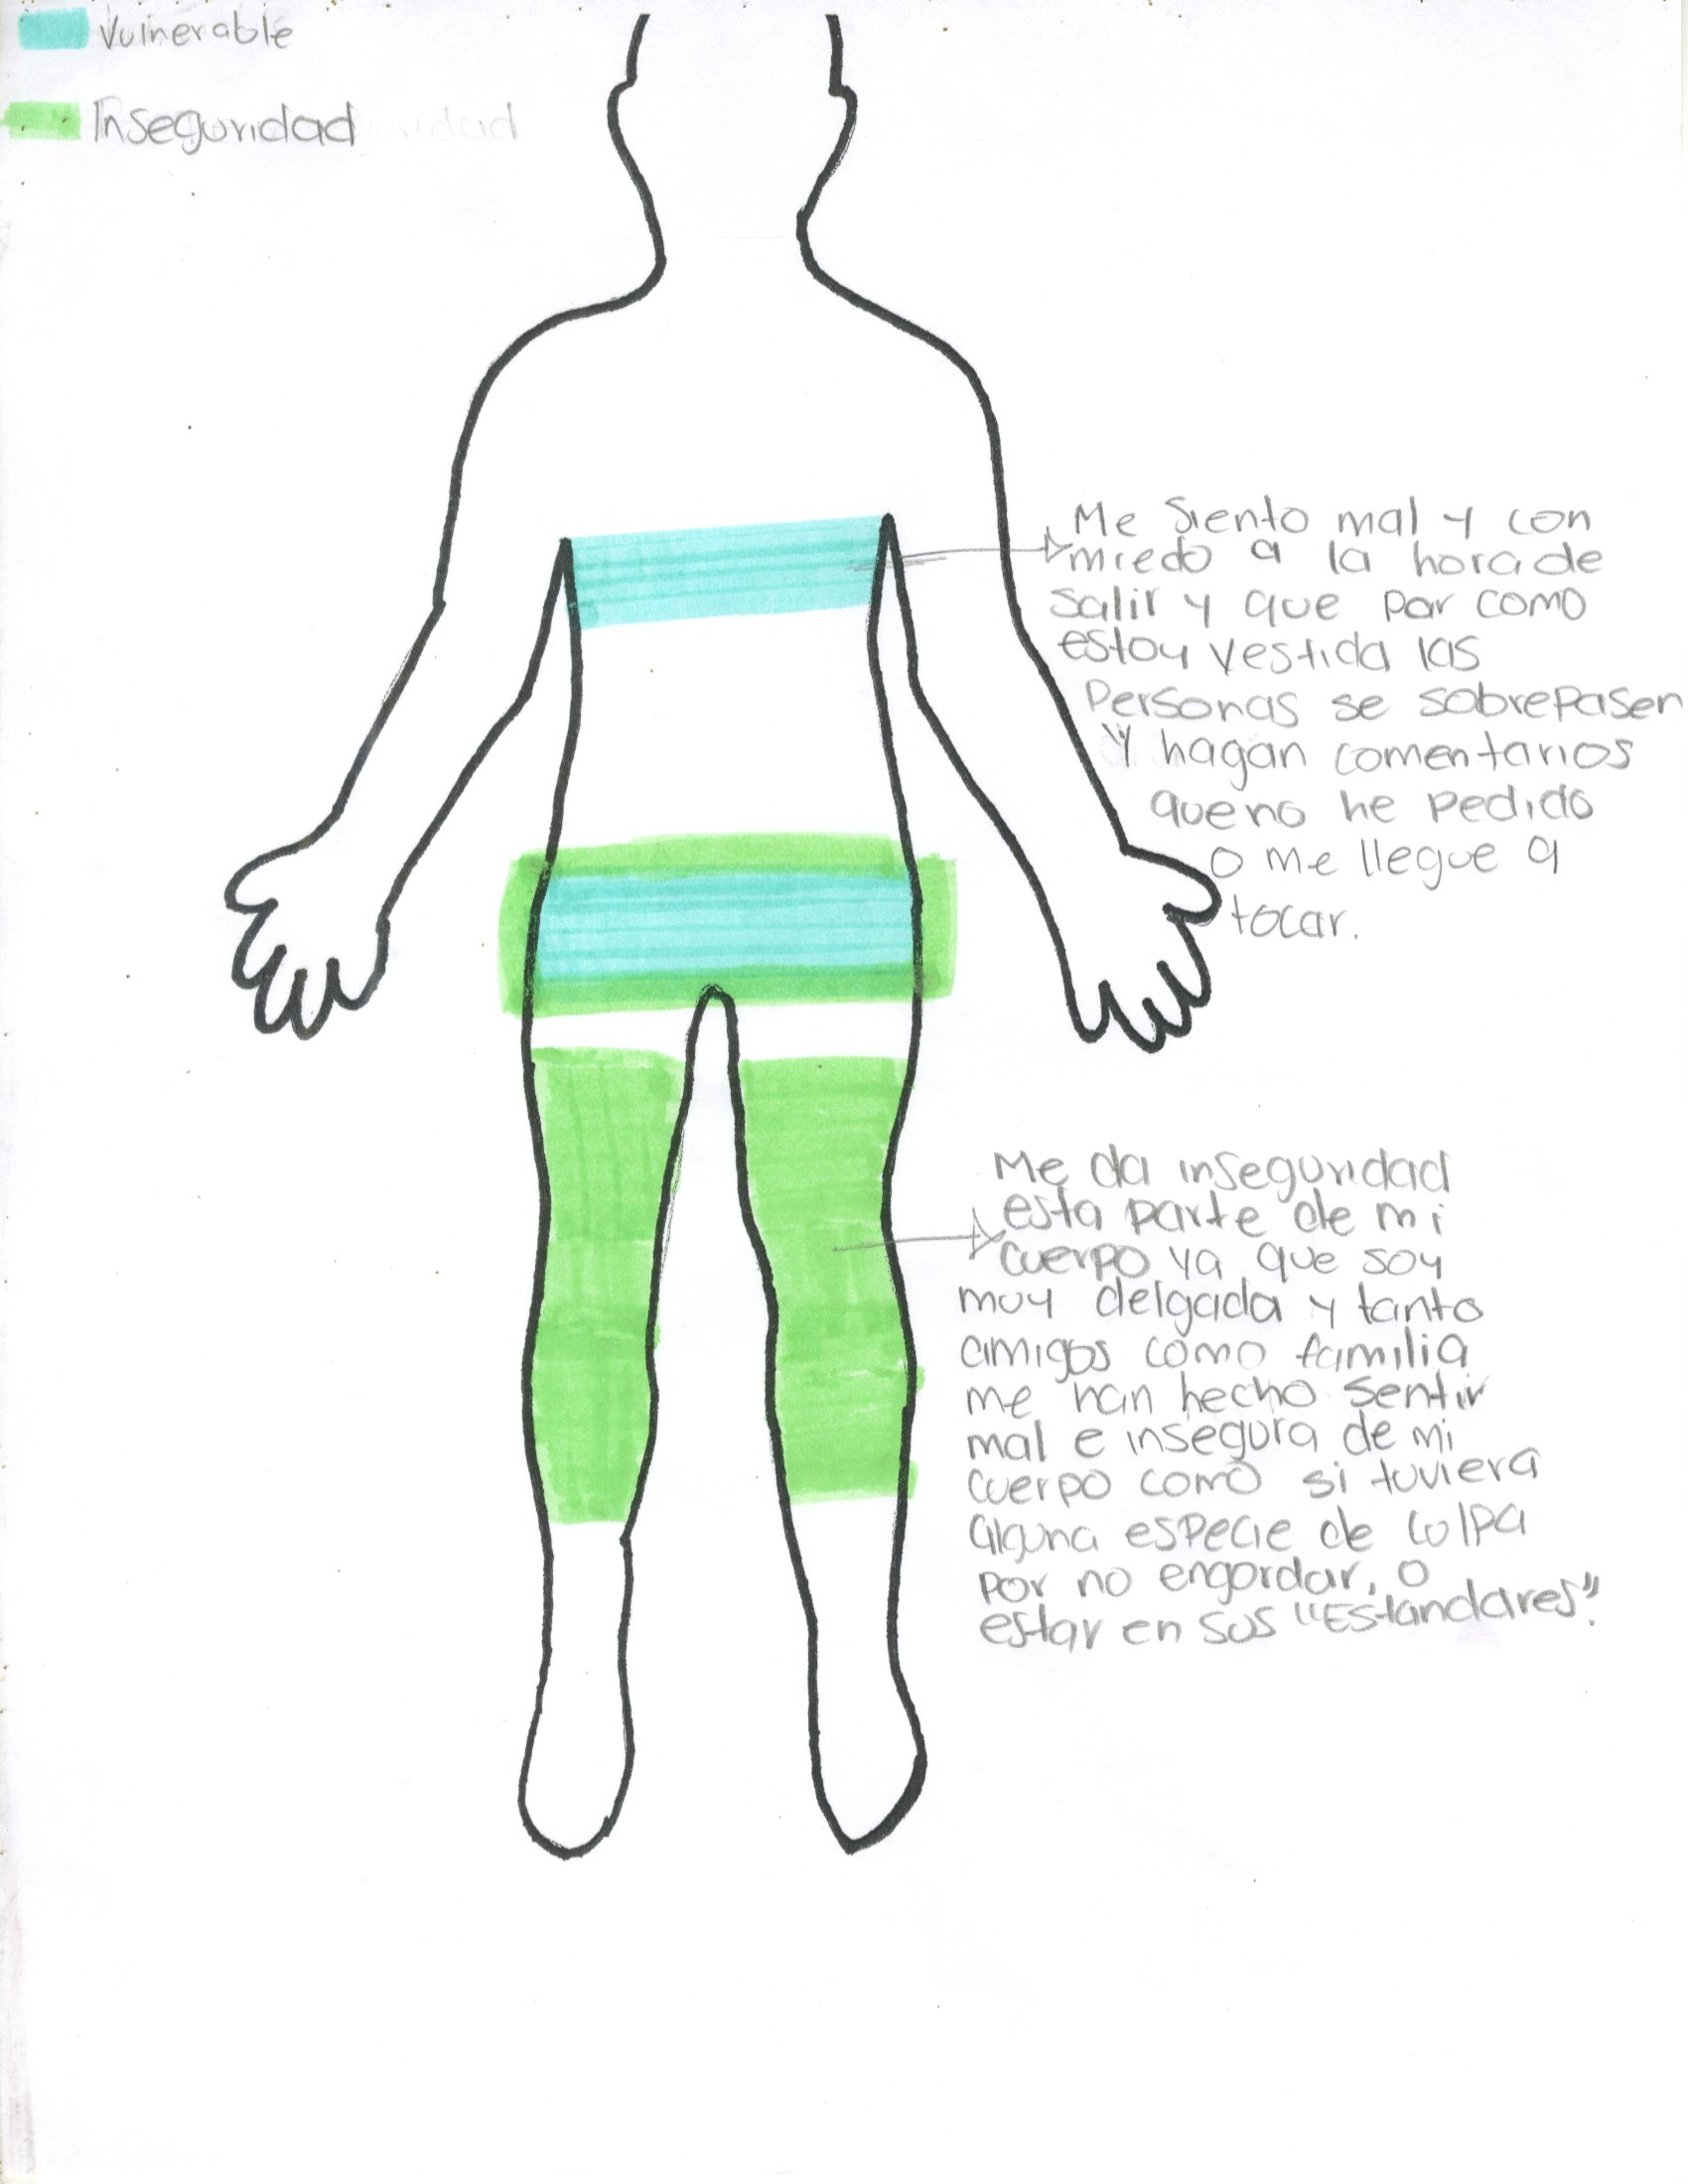 Vulnerable
Inseguridad
Me siento mal y con
miedo a la hora de
salir y que por como
estoy vestida las
Personas se sobrepasen
Y hagan comentarios
que no he pedido
o me llegue a
tocar.
Me da inseguridad
esta parte de mi
cuerpo ya que soy
muy delgada y tanto
amigos como familia
me han hecho sentir
mal e insegura de mi
cuerpo como si tuviera
alguna especie de culpa
por no engordar, o
estar en sus "Estandares".